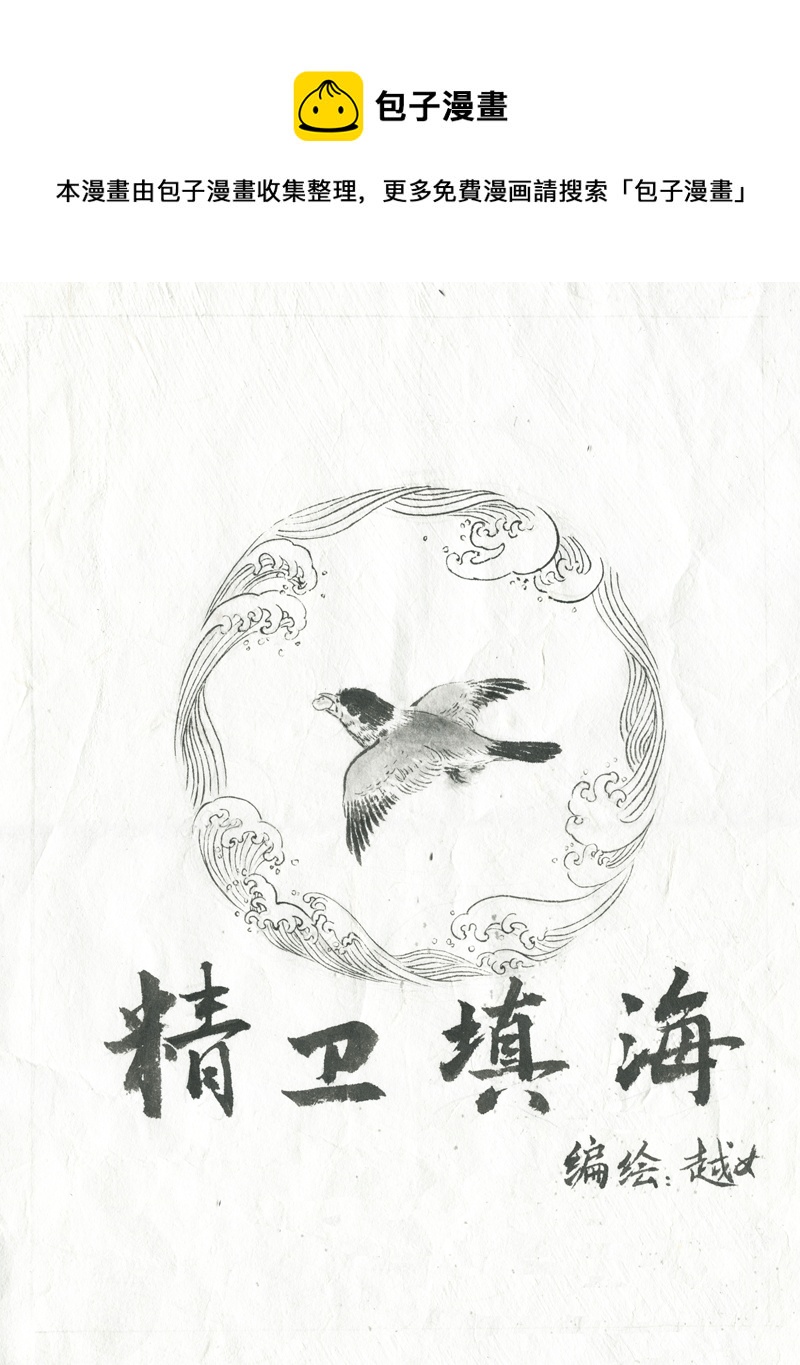 包子漫畫
本漫畫由包子漫畫收集整理，更多免費漫画請搜索「包子漫畫」
精卫填海
编绘：越女